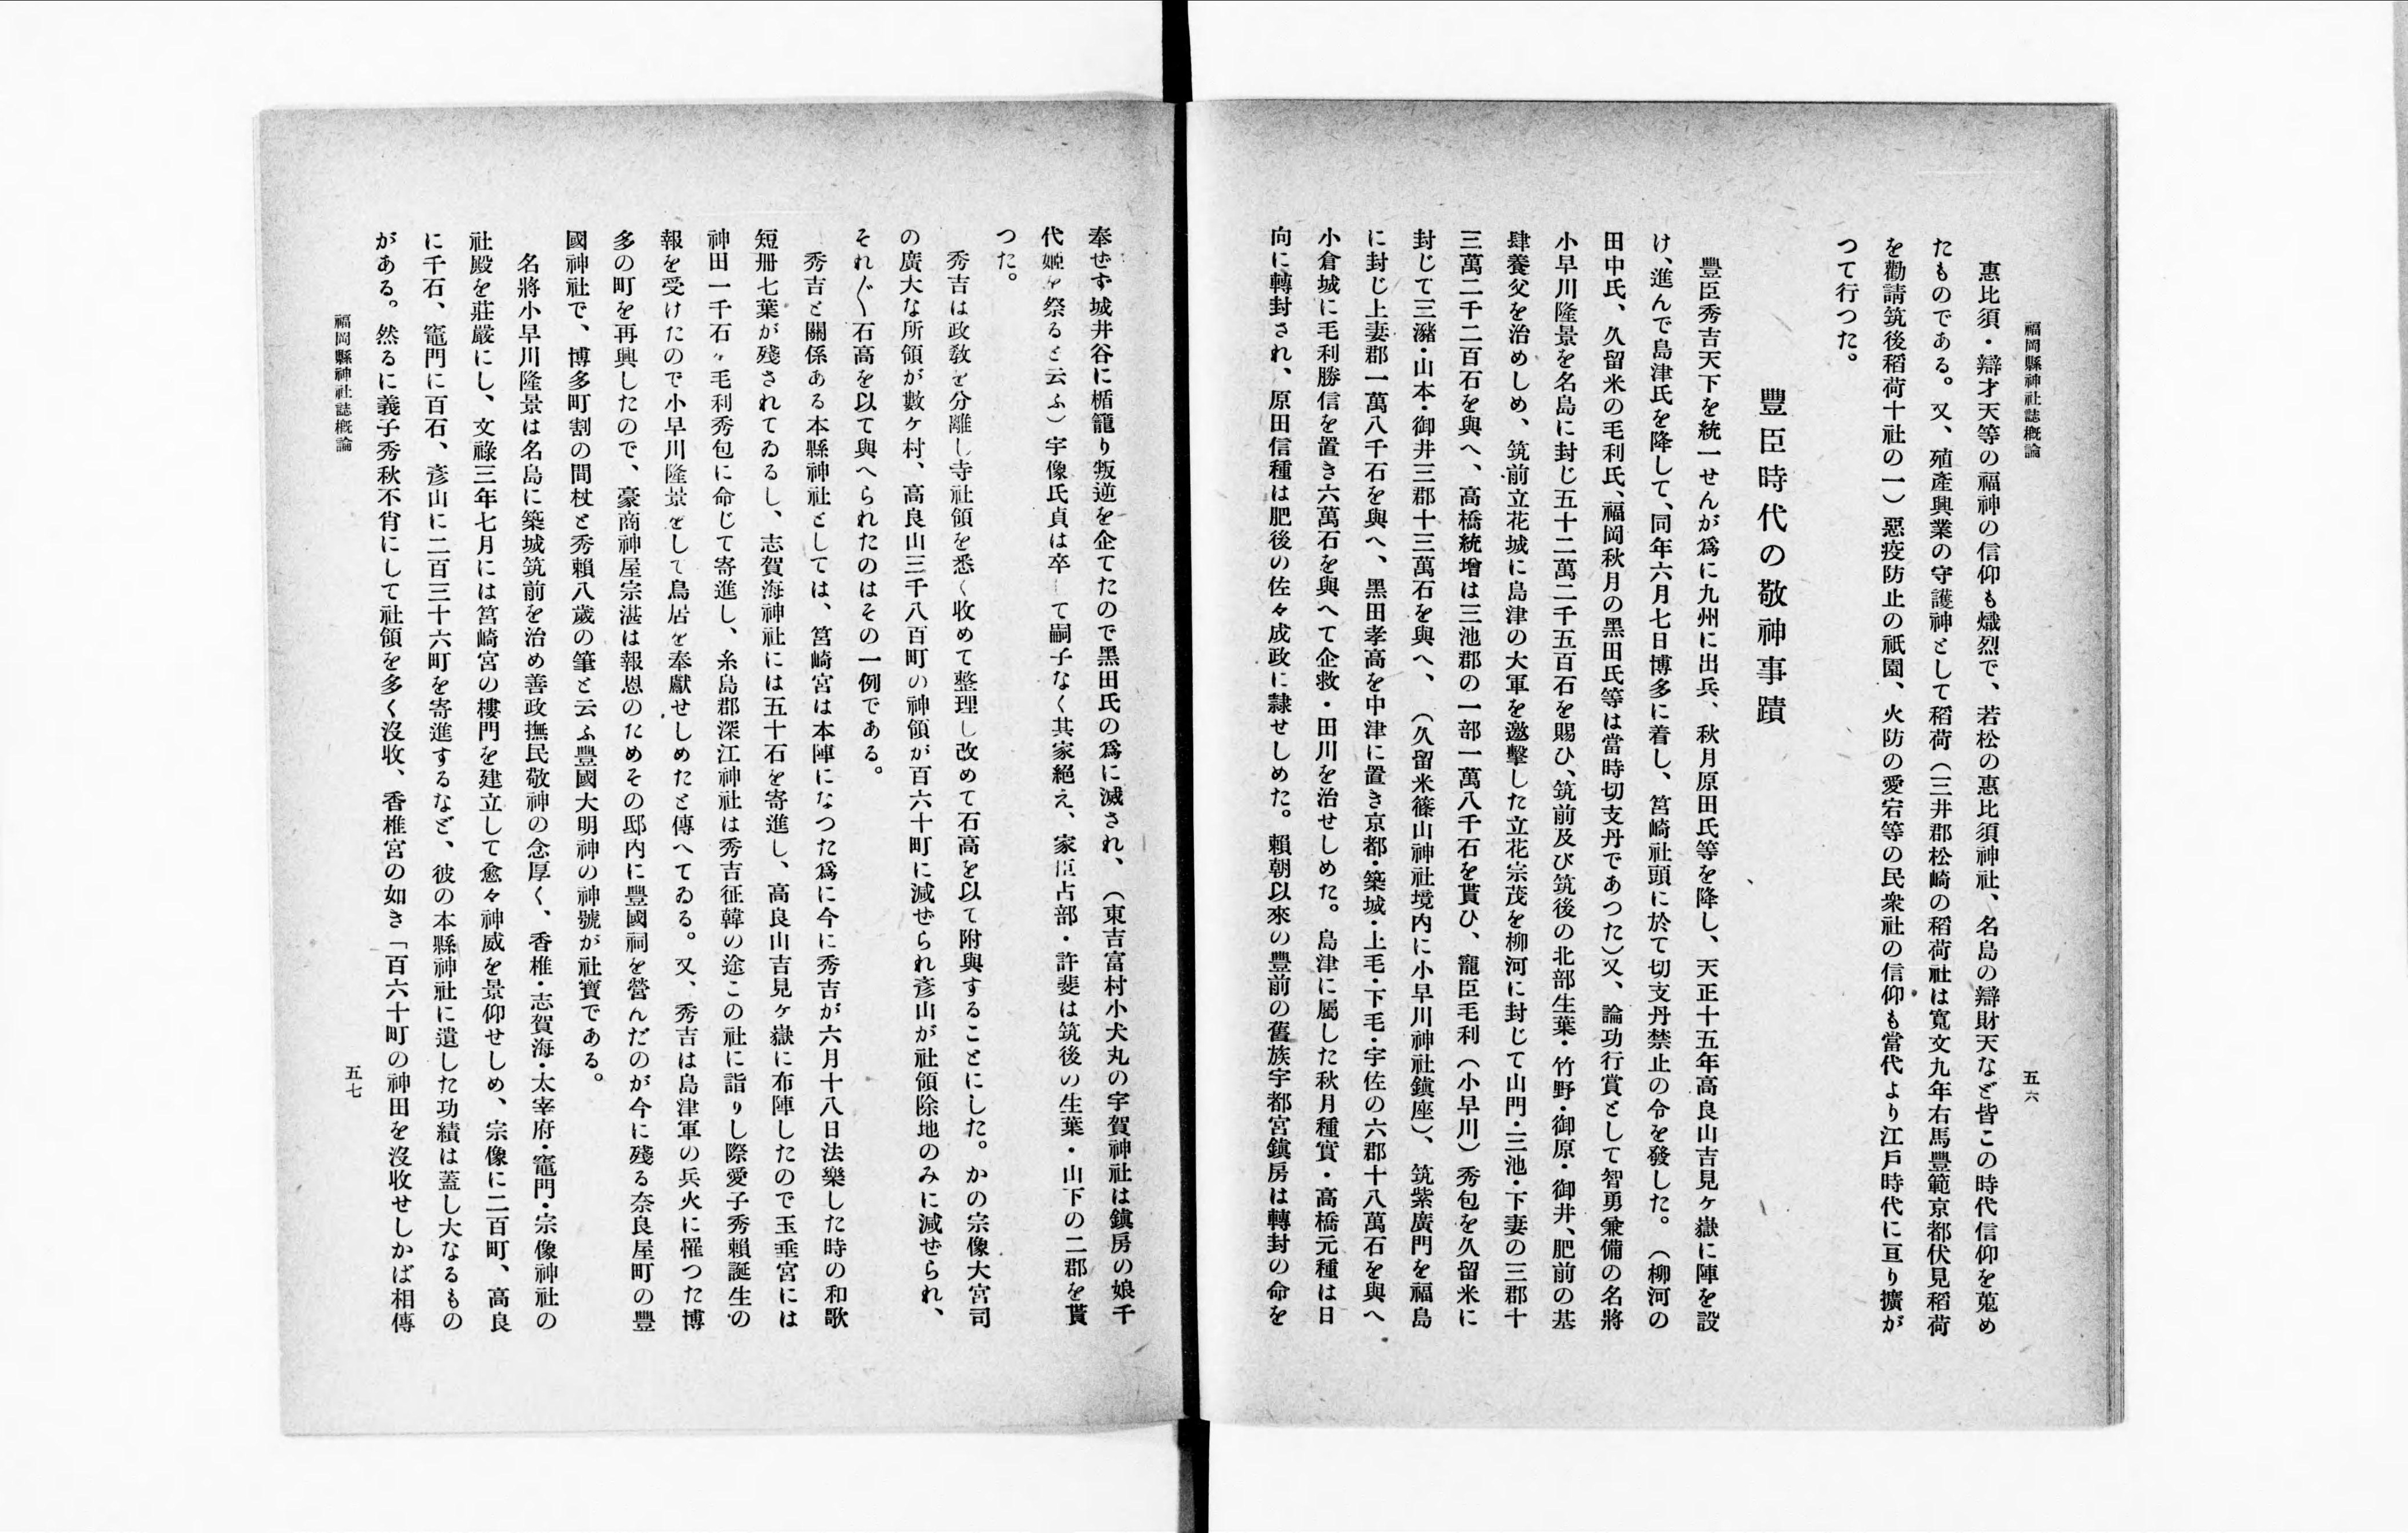 福岡縣神社誌概論
五六
惠比須・辯才天等の福神の信仰も熾烈で、若松の惠比須神社、名島の辯財天など皆この時代信仰を蒐め
たものである。又、殖產興業の守護神として稻荷（三井郡松崎の稻荷社は寬文九年右馬豐範京都伏見稻荷
を勸請筑後稻荷十社の一）惡疫防止の祇園、火防の愛宕等の民衆社の信仰も當代より江戶時代に亘り擴が
つて行つた。
豐臣時代の敬神事蹟
豐臣秀吉天下を統一せんが爲に九州に出兵、秋月原田氏等を降し、天正十五年高良山吉見ヶ嶽に陣を設
け、進んで島津氏を降して、同年六月七日博多に着し、筥崎社頭に於て切支丹禁止の令を發した。（柳河の
田中氏、久留米の毛利氏、福岡秋月の黑田氏等は當時切支丹であつた）又、論功行賞として智勇兼備の名將
小早川隆景を名島に封じ五十二萬二千五百石を賜ひ、筑前及び筑後の北部生葉・竹野・御原・御井、肥前の基
肆養父を治めしめ、筑前立花城に島津の大軍を邀擊した立花宗茂を柳河に封じて山門・三池・下妻の三郡十
三萬二千二百石を與へ、高橋統增は三池郡の一部一萬八千石を貰ひ、寵臣毛利（小早川）秀包を久留米に
封じて三瀦・山本・御井三郡十三萬石を與へ、（久留米篠山神社境內に小早川神社鎭座）、筑紫廣門を福島
に封じ上妻郡一萬八千石を與へ、黑田孝高を中津に置き京都・築城・上毛・下毛・宇佐の六郡十八萬石を與へ
小倉城に毛利勝信を置き六萬石を與へて企救・田川を治せしめた。島津に屬した秋月種實・高橋元種は日
向に轉封され、原田信種は肥後の佐々成政に隸せしめた。賴朝以來の豐前の舊族宇都宮鎭房は轉封の命を
奉せず城井谷に楯籠り叛逆を企てたので黑田氏の爲に滅され、（東吉富村小犬丸の宇賀神社は鎭房の娘千
代姬を祭ると云ふ）宇像氏貞は卒して嗣子なく其家絕え、家臣占部・許斐は筑後の生葉・山下の二郡を貰
つた。
秀吉は政敎を分離し寺社領を悉く收めて整理し改めて石高を以て附與することにした。かの宗像大宮司
の廣大な所領が數ヶ村、高良山三千八百町の神領が百六十町に減ぜられ彥山が社領除地のみに減ぜられ、
それ〴〵石高を以て與へられたのはその一例である。
秀吉と關係ある本縣神社としては、筥崎宮は本陣になつた爲に今に秀吉が六月十八日法樂した時の和歌
短冊七葉が殘されてゐるし、志賀海神社には五十石を寄進し、高良山吉見ヶ嶽に布陣したので玉垂宮には
神田一千石ヶ毛利秀包に命じて寄進し、糸島郡深江神社は秀吉征韓の途この社に詣りし際愛子秀賴誕生の
報を受けたので小早川隆景をして鳥居を奉獻せしめたと傳へてゐる。又、秀吉は島津軍の兵火に罹つた博
多の町を再興したので、豪商神屋宗湛は報恩のためその邸內に豐國祠を營んだのが今に殘る奈良屋町の豐
國神社で、博多町割の間杖と秀賴八歲の筆と云ふ豐國大明神の神號が社寶である。
名將小早川隆景は名島に築城筑前を治め善政撫民敬神の念厚く、香椎・志賀海・太宰府・竈門・宗像神社の
社殿を莊嚴にし、文祿三年七月には筥崎宮の樓門を建立して愈々神威を景仰せしめ、宗像に二百町、高良
に千石、竈門に百石、彥山に二百三十六町を寄進するなど、彼の本縣神社に遺した功績は蓋し大なるもの
がある。然るに義子秀秋不肖にして社領を多く沒收、香椎宮の如き「百六十町の神田を沒收せしかば相傳
福岡縣神社誌概論
五七